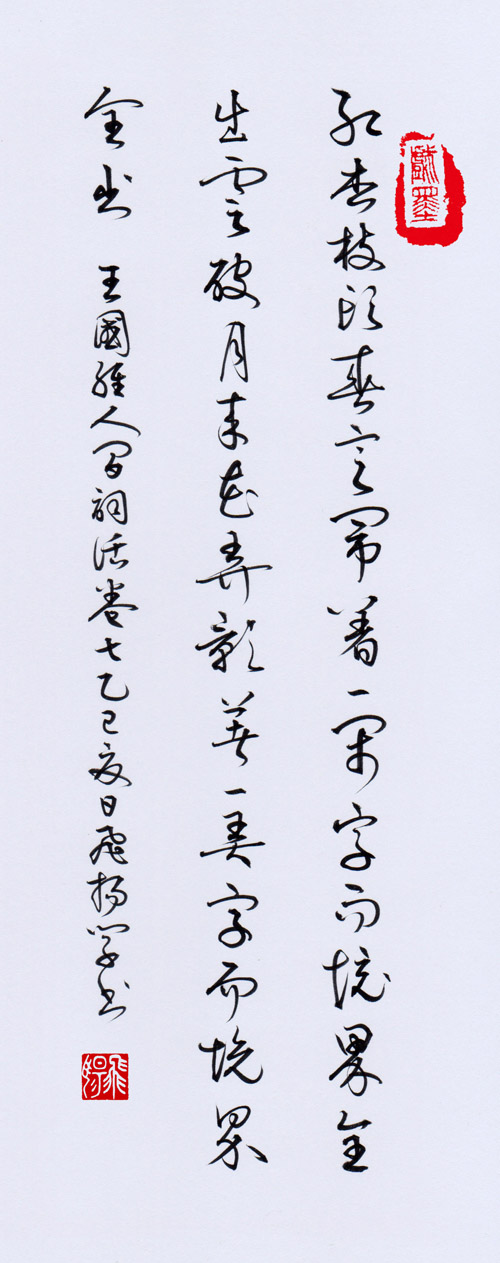 戲墨
紅杏枝頭春意鬧著一鬧字而境界全
出雲破月來花弄影著一弄字而境界
全出 王國維人間詞話卷七乙巳夏日飛揚學書
飛揚